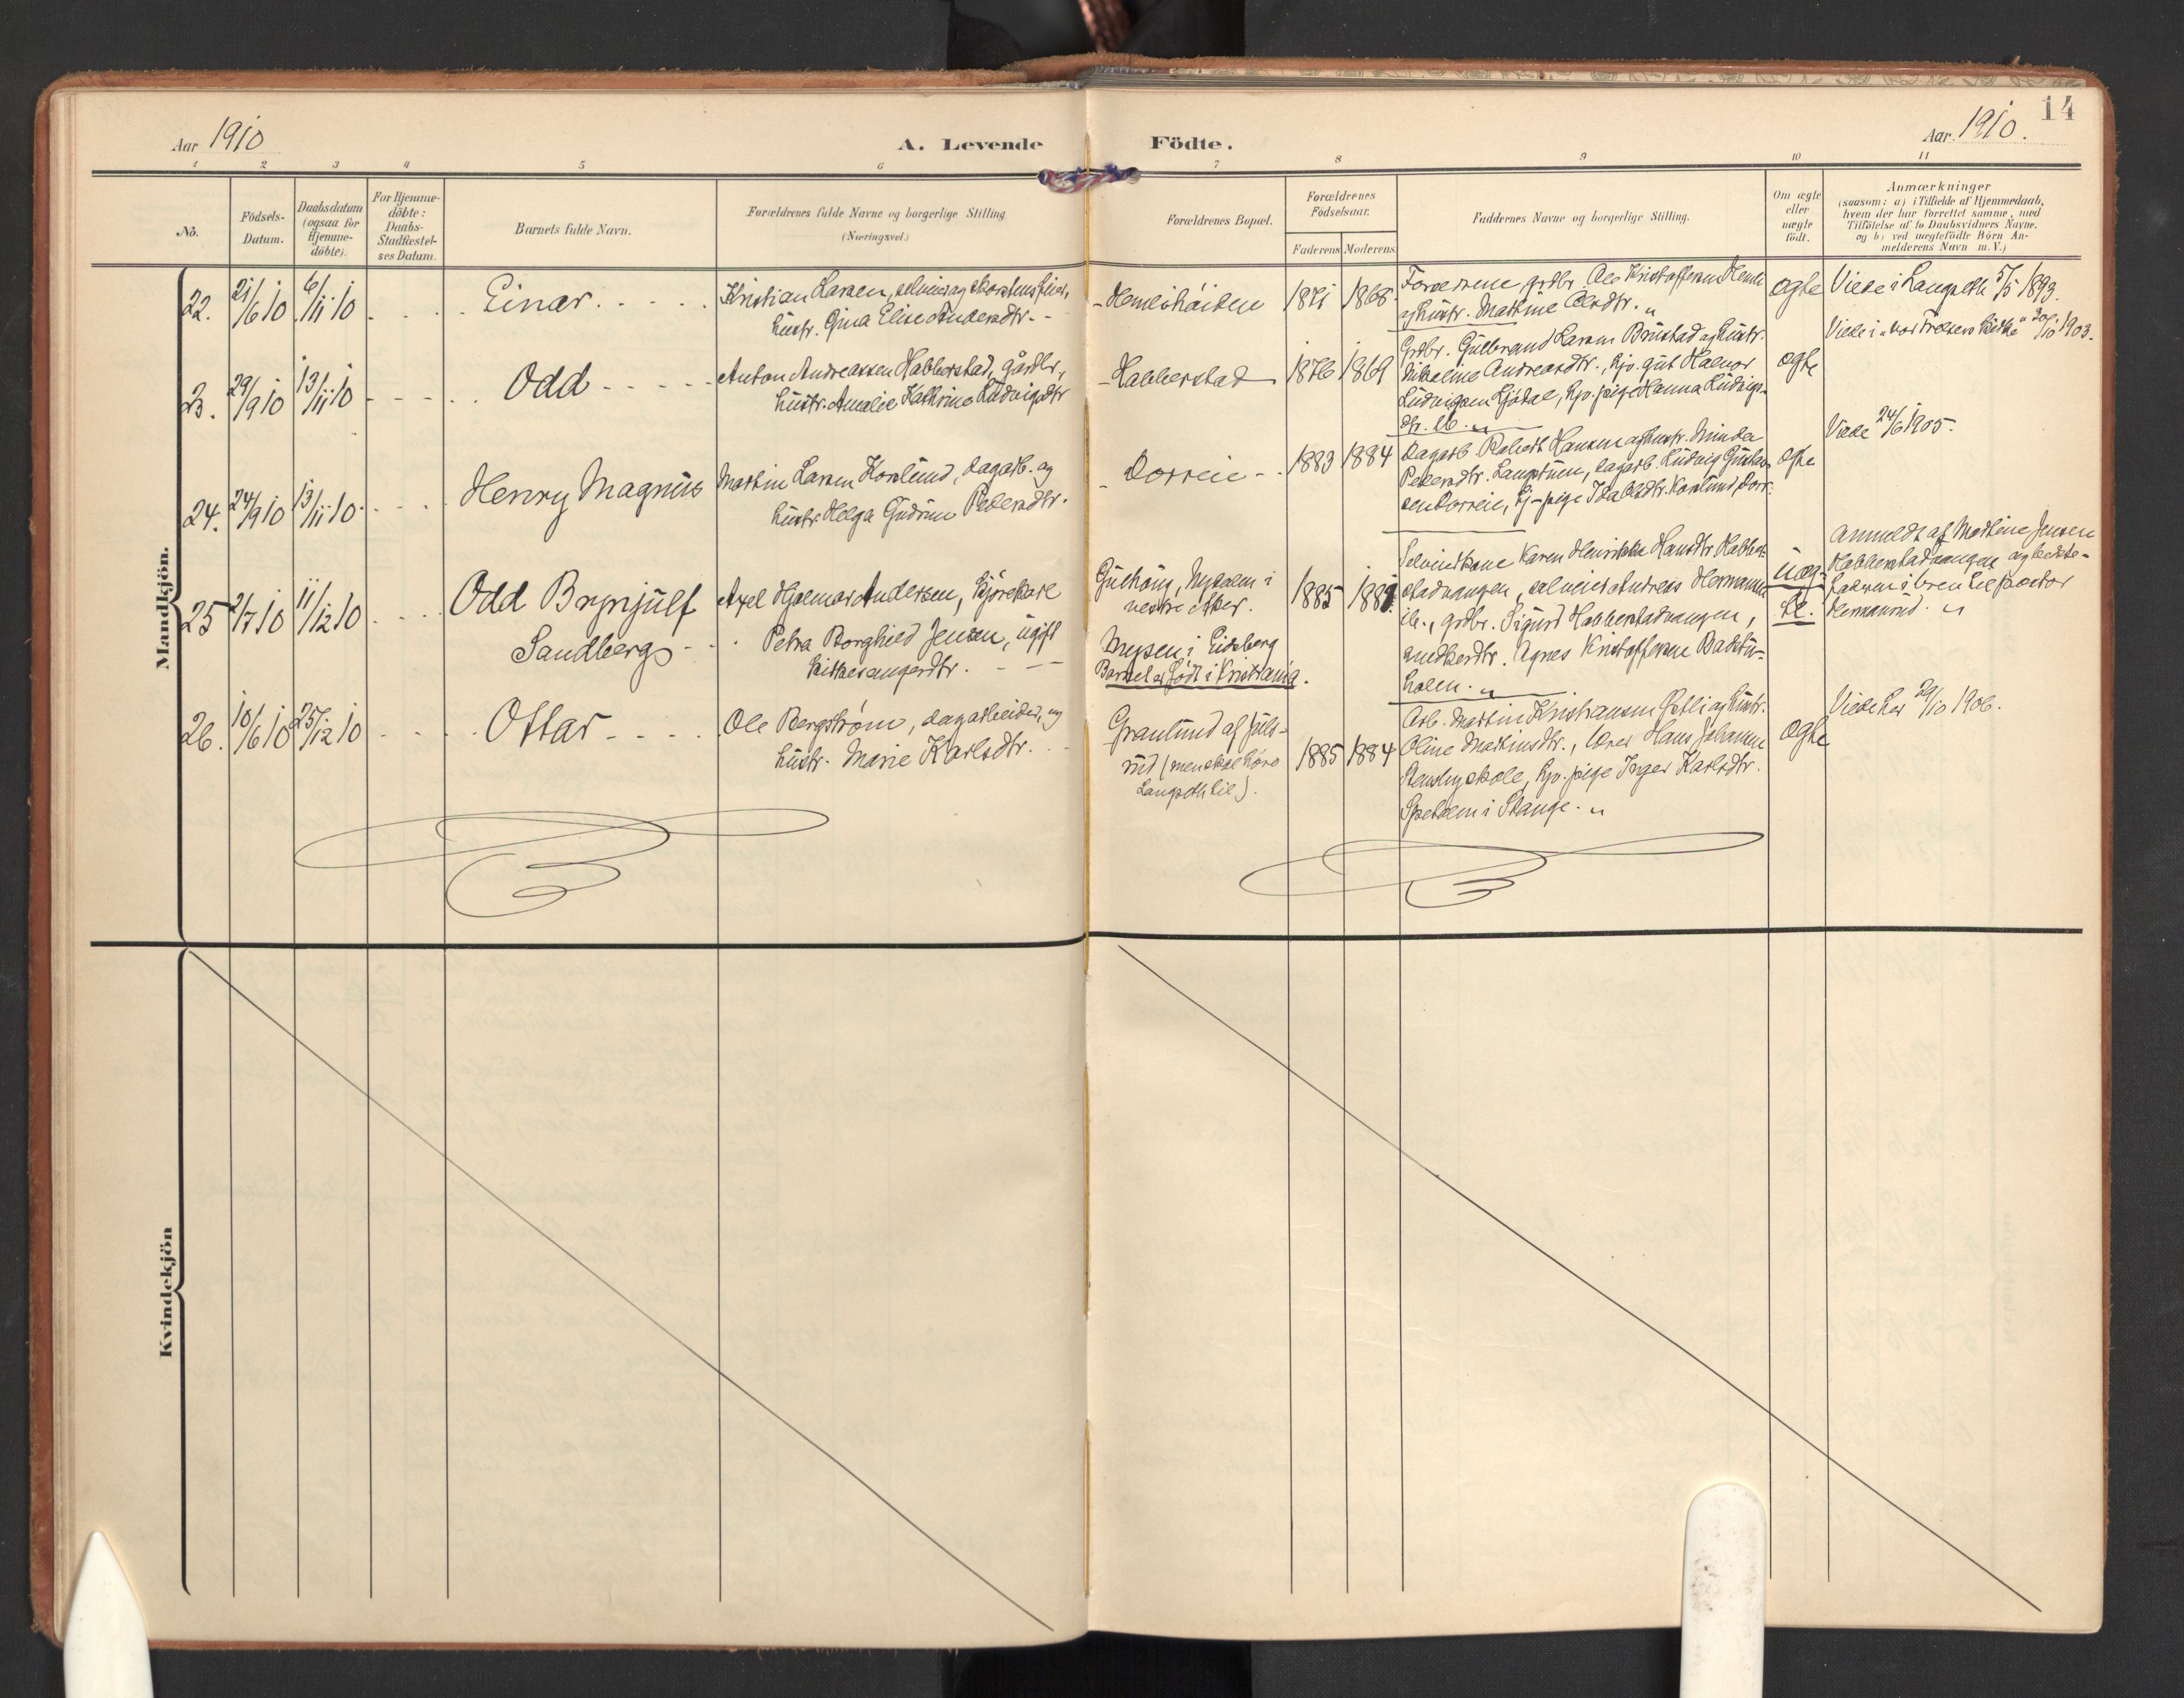 14
Aar 1910
A. Levende Födte.
Aar 1910.
1 2 3 4 5 6 7 8 9 10 11
No.
Födsels-
Datum.
Daabsdatum
(ogsaa for
Hjemme-
döbte).
For Hjemme-
döbte:
Daabs-
Stadfæstel-
ses Datum.
Barnets fulde Navn.
Forældrenes fulde Navne og borgerlige Stilling
(Næringsvei.)
Forældrenes Bopæl.
Forældrenes
Födselsaar.
Faderens Moderens
Faddernes Navne og borgerlige Stilling.
Om ægte
eller
uægte
födt.
Anmærkninger
(saasom: a) i Tilfælde af Hjemmedaab,
hvem der har forrettet samme, med
Tilföielse af to Daabsvidners Navne.
og b) ved uægtefödte Börn An-
melderens Navn m. V.)
Mandkjön.
22.
21/6 10
6/11 10
Einar
Kristian Larsen, selveier og skorstensfeier,
hustr. Gina Elise Andersdtr.
Hemlihåiden
1871 1868
Forældrene, grdbr. Ole Kristoffersen Hemli
og hustr. Mathine Olesdtr.
ogte
Viede i Langseth 5/5 1893.
23.
29/9 10
13/11 10
Odd
Anton Andreassen Habberstad, gårdbr,
hustr. Amalie Kathrine Ludvigsdtr
Habberstad
1876 1869
Grdbr. Gulbrand Larsen Brustad og hustr.
Nikoline Andreasdtr., hjv. gut Halvor
Ludvigsen, hjv. pige Hanna Ludvigs-
dtr. ib.
ogte
Viede i "Vor Frelsers kirke" 30/10 1903.
24.
24/9 10
13/11 10
Henry Magnus
Martin Larsen Korslund, dagarb. og
hustr. Helga Gudrun Pedersdtr.
Dorreie
1883 1884
Dagarb. Robert Hansen og hustr. Minda
Pedersdtr. Langstuen, dagarb. Ludvig Gustav-
sen Dorreie, tj-pige Ida Olsdtr. Korslund, Dorr.
ogte
Viede 24/6 1905.
25
2/7 10
11/12 10
Odd Brynjulf
Sandberg
Axel Hjalmar Andersen, kjörekarl
Petra Borghild Jensen, ugift
kirkesangerdtr.
Gulhaug, Nysalem i
vestre Aker.
Mysen i Eidsberg
Barnet er födt i Kristiania.
1885 188
Selveierkone Karen Henrikke Hansdtr. Habber-
stadvangen, selveier Andreas Hermansen
ib., grdbr. Sigurd Habberstadvangen,
snedkerdtr. Agnes Kristoffersen Badstu-
holen.
uæg-
te.
Anmeldt af Mathine Jensen
Habberstadvangen og bedste-
faderen
Hermanrud.
26.
10/6 10
25/12 10
Ottar
Ole Bergström, dagarbeider, og
hustr. Marie Karlsdtr.
Granlund af Juls-
rud (men skal höre
Langseth til).
1885 1884
Arb. Martin Kristiansen og hustr.
Oline Martinsdtr., lærer Hans Johansen
Stensby skole, hjv. pige Inger Karlsdtr.
i Stange.
ogte
Viede her 29/10 1906.
Kvindekjön